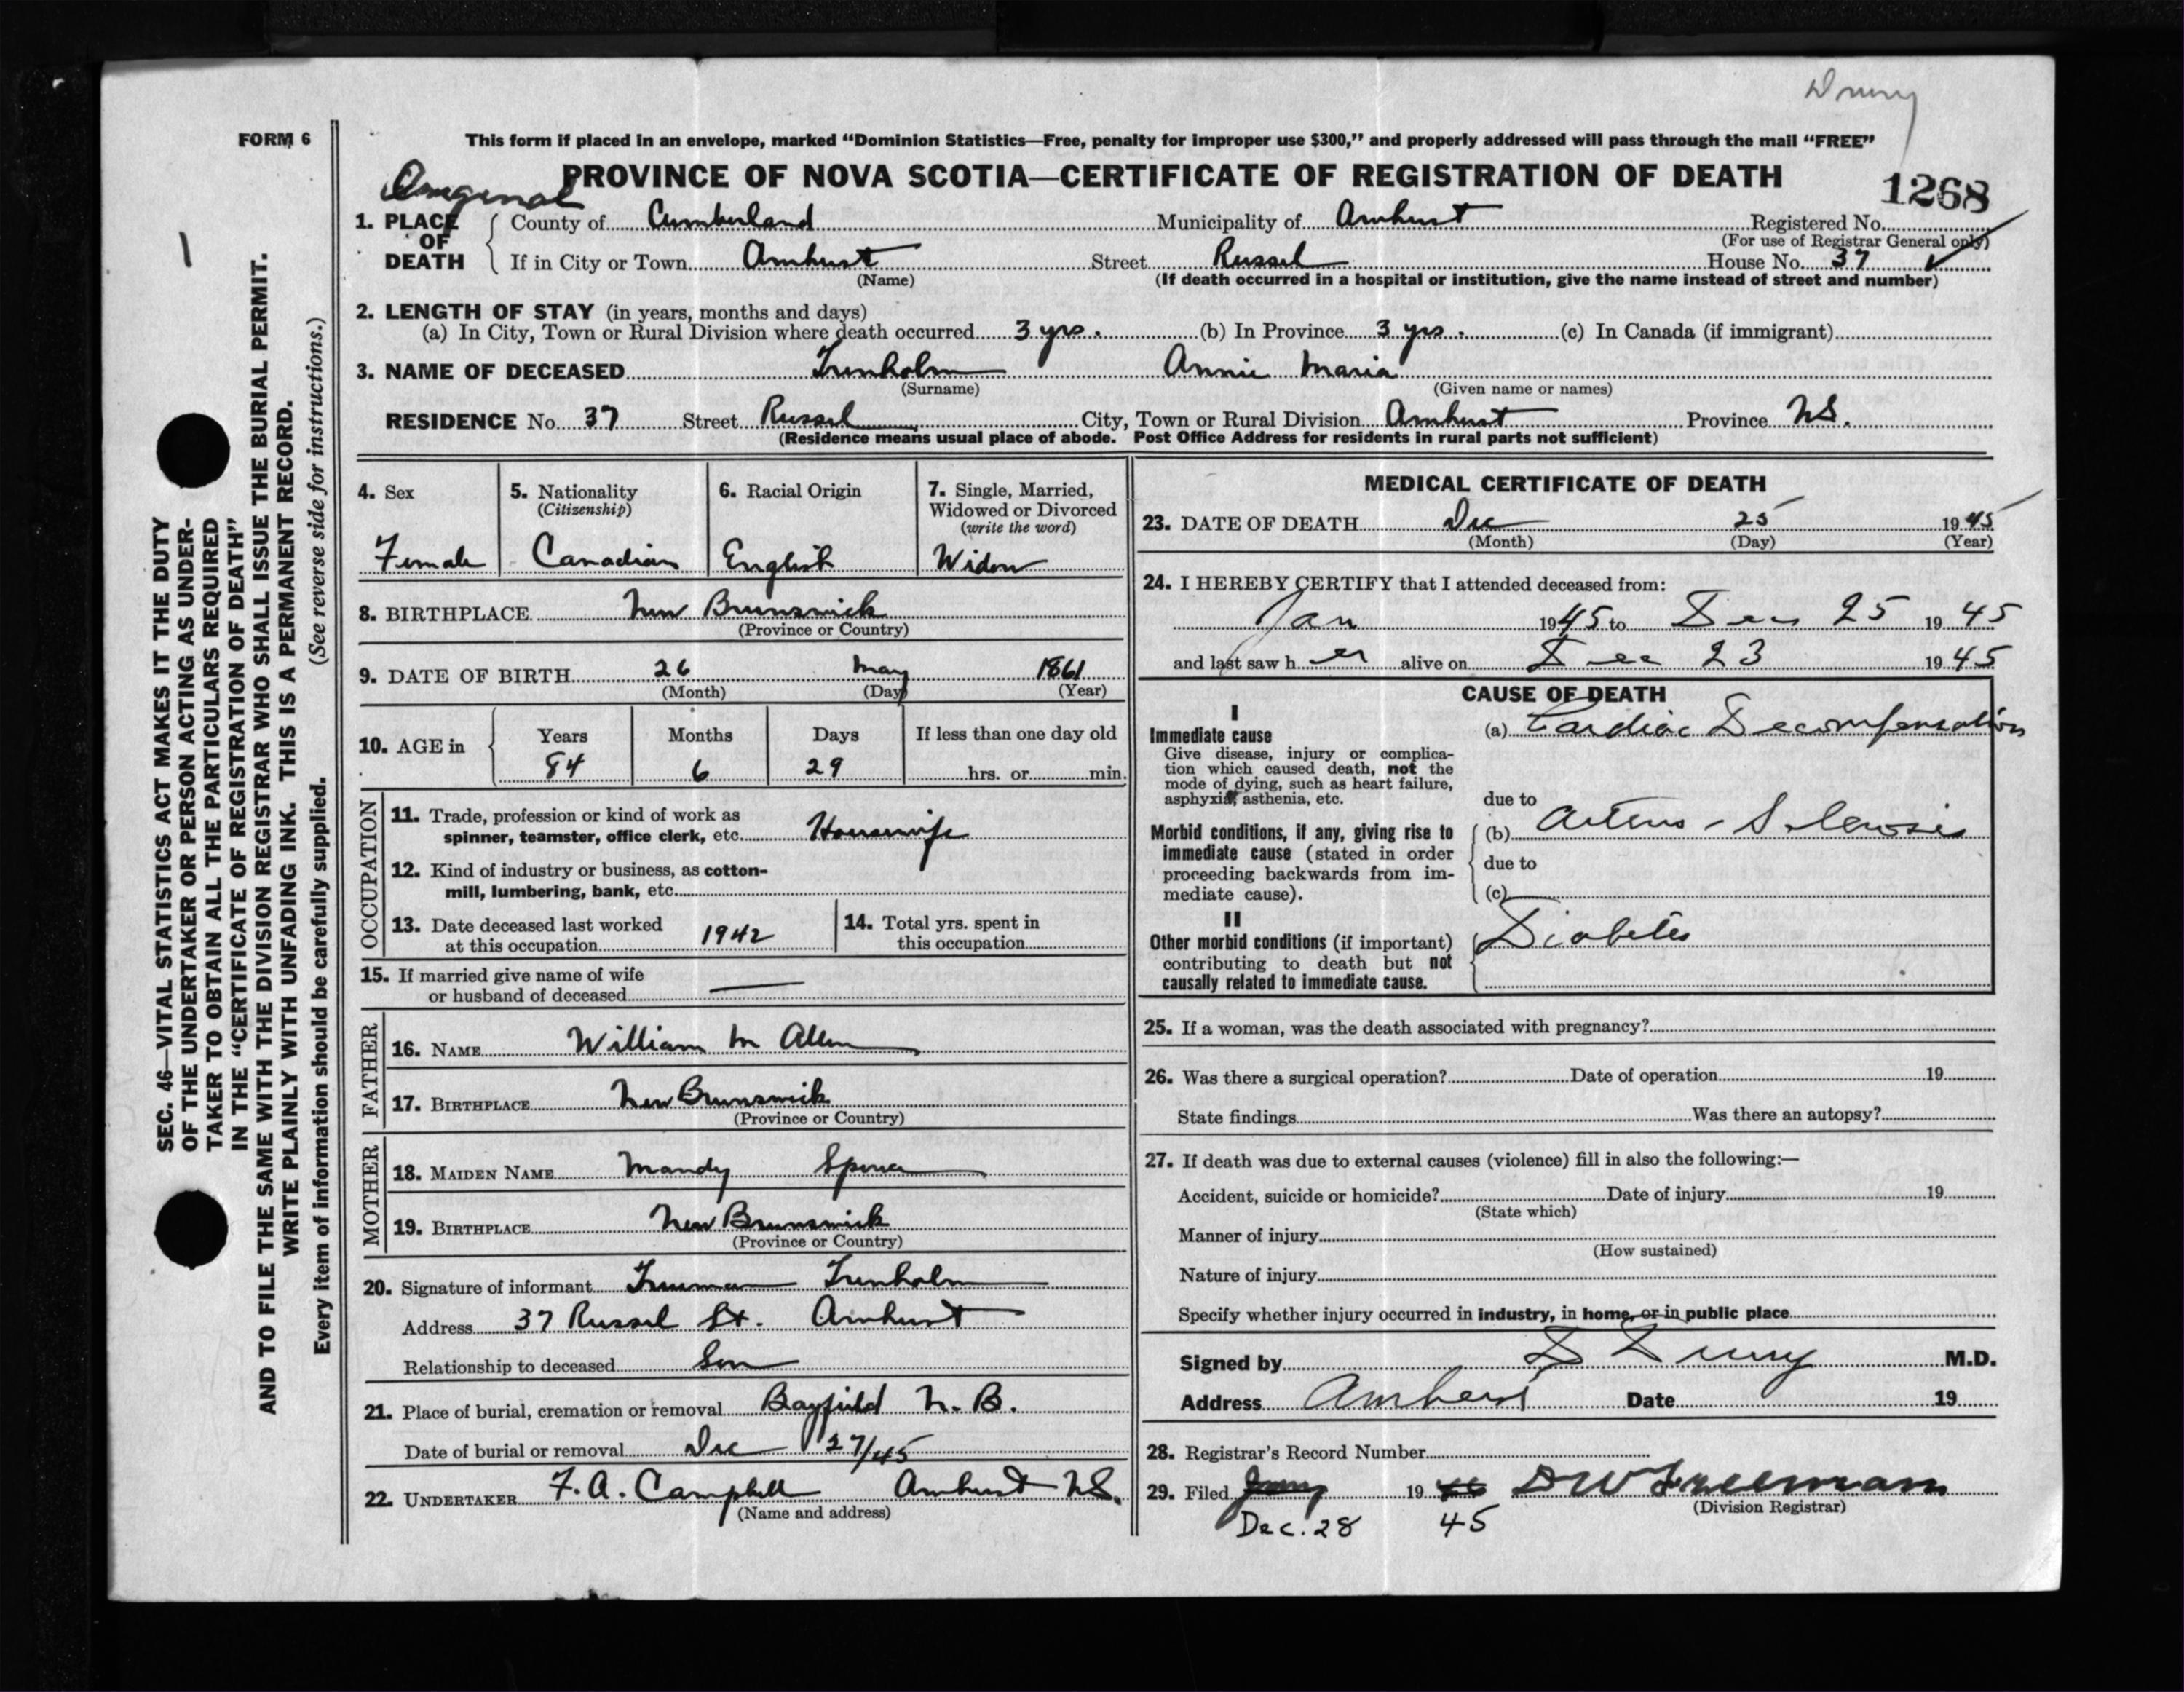 Drury
FORM 6
This form if placed in an envelope, marked “Dominion Statistics—Free, penalty for improper use $300,” and properly addressed will pass through the mail “FREE”
Original
PROVINCE OF NOVA SCOTIA—CERTIFICATE OF REGISTRATION OF DEATH
1268
1
1. PLACE OF DEATH County of Cumberland Municipality of Amherst Registered No.
(For use of Registrar General only)
If in City or Town Amherst Street Russel House No. 37 ✓
(Name) (If death occurred in a hospital or institution, give the name instead of street and number)
2. LENGTH OF STAY (in years, months and days)
(a) In City, Town or Rural Division where death occurred 3 yrs. (b) In Province 3 yrs. (c) In Canada (if immigrant)
3. NAME OF DECEASED Trenholm Annie Maria
(Surname) (Given name or names)
RESIDENCE No. 37 Street Russel City, Town or Rural Division Amherst Province N.S.
(Residence means usual place of abode. Post Office Address for residents in rural parts not sufficient)
4. Sex
Female
5. Nationality
(Citizenship)
Canadian
6. Racial Origin
English
7. Single, Married,
Widowed or Divorced
(write the word)
Widow
8. BIRTHPLACE New Brunswick
(Province or Country)
9. DATE OF BIRTH 26 May 1861
(Month) (Day) (Year)
10. AGE in Years Months Days If less than one day old
84 6 29 hrs. or min.
OCCUPATION
11. Trade, profession or kind of work as
spinner, teamster, office clerk, etc. Housewife
12. Kind of industry or business, as cotton-
mill, lumbering, bank, etc.
13. Date deceased last worked
at this occupation 1942
14. Total yrs. spent in
this occupation
15. If married give name of wife
or husband of deceased —
FATHER
16. NAME William M Allen
17. BIRTHPLACE New Brunswick
(Province or Country)
MOTHER
18. MAIDEN NAME Mandy Spence
19. BIRTHPLACE New Brunswick
(Province or Country)
20. Signature of informant Truman Trenholm
Address 37 Russel St. Amherst
Relationship to deceased Son
21. Place of burial, cremation or removal Bayfield N.B.
Date of burial or removal Dec 27/45
22. UNDERTAKER F.A. Campbell Amherst N.S.
(Name and address)
MEDICAL CERTIFICATE OF DEATH
23. DATE OF DEATH Dec 25 1945
(Month) (Day) (Year)
24. I HEREBY CERTIFY that I attended deceased from:
Jan 1945 to Dec 25 1945
and last saw her alive on Dec 23 1945
CAUSE OF DEATH
I
Immediate cause
Give disease, injury or complica-
tion which caused death, not the
mode of dying, such as heart failure,
asphyxia, asthenia, etc.
(a) Cardiac Decompensation
due to
Morbid conditions, if any, giving rise to
immediate cause (stated in order
proceeding backwards from im-
mediate cause).
(b) Arterio-Sclerosis
due to
(c)
II
Other morbid conditions (if important)
contributing to death but not
causally related to immediate cause.
Diabetes
25. If a woman, was the death associated with pregnancy?
26. Was there a surgical operation? Date of operation 19
State findings Was there an autopsy?
27. If death was due to external causes (violence) fill in also the following:—
Accident, suicide or homicide? Date of injury 19
(State which)
Manner of injury
(How sustained)
Nature of injury
Specify whether injury occurred in industry, in home, or in public place
Signed by D Drury M.D.
Address Amherst Date 19
28. Registrar's Record Number
29. Filed 19 DW Freeman
(Division Registrar)
Dec. 28 45
SEC. 46—VITAL STATISTICS ACT MAKES IT THE DUTY
OF THE UNDERTAKER OR PERSON ACTING AS UNDER-
TAKER TO OBTAIN ALL THE PARTICULARS REQUIRED
IN THE “CERTIFICATE OF REGISTRATION OF DEATH”
AND TO FILE THE SAME WITH THE DIVISION REGISTRAR WHO SHALL ISSUE THE BURIAL PERMIT.
WRITE PLAINLY WITH UNFADING INK. THIS IS A PERMANENT RECORD.
Every item of information should be carefully supplied. (See reverse side for instructions.)